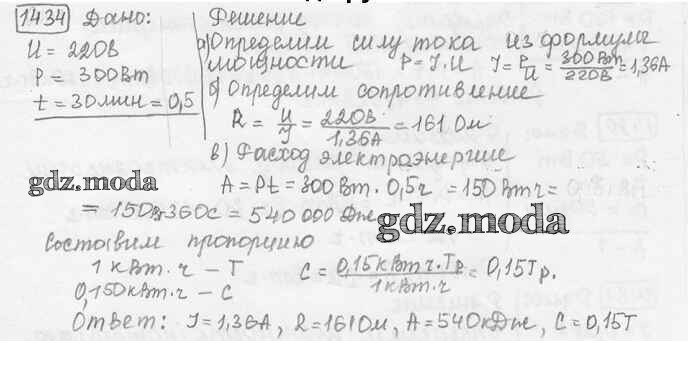 1434 Дано:
U = 220В
P = 300Вт
t = 30мин = 0,5
Решение
а) Определим силу тока из формулы
мощности P = I·U I = P/U = 300Вт/220В = 1,36А
б) Определим сопротивление
R = U/I = 220В/1,36А = 161 Ом
в) Расход электроэнергие
A = Pt = 300 Вт · 0,5ч = 150 Вт ч =
gdz.moda
= 150В·360с = 540 000 Дж
gdz.moda
Составим пропорцию
1 кВт · ч – Т
0,150кВт·ч – С
С = 0,15кВт ч·Тр/1кВт·ч = 0,15Тр.
Ответ: I = 1,36А, R = 161Ом, A = 540кДж, С = 0,15Т